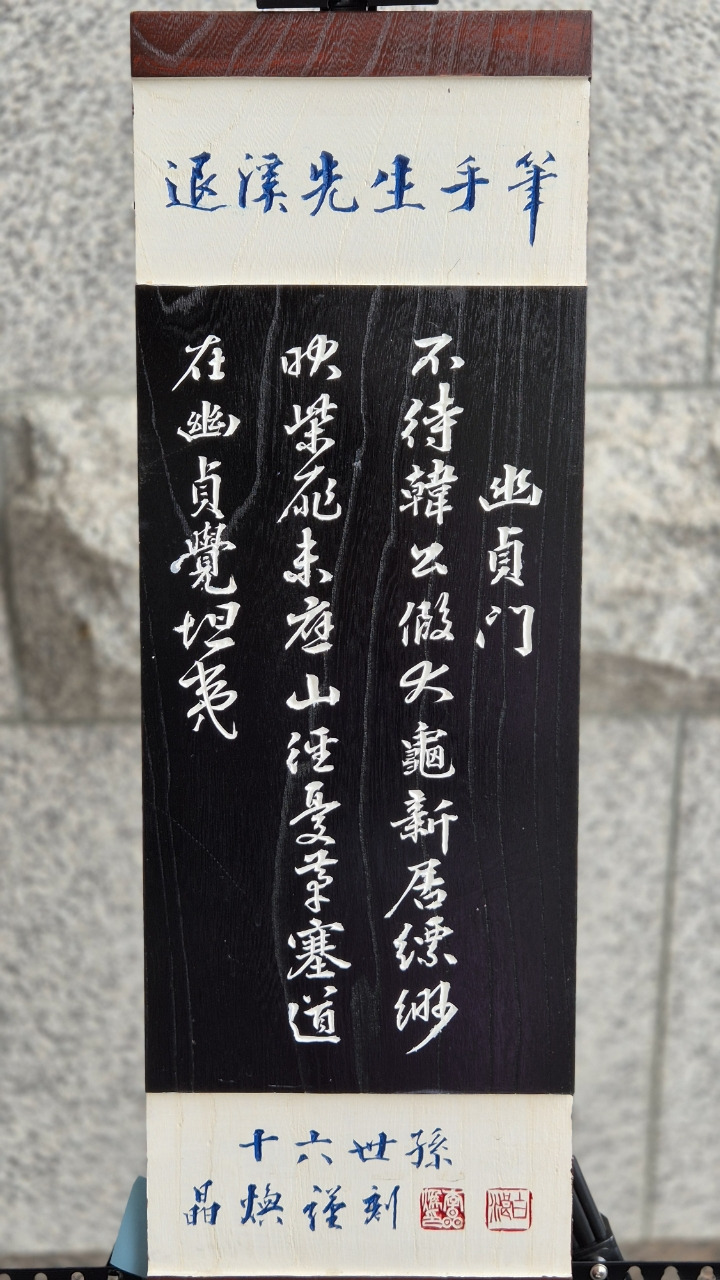 退溪先生手筆
幽貞門
不待韓公假大龜新居縹緲
映柴扉未應山徑憂茅塞道
在幽貞覺坦夷
十六世孫
晶煥謹刻